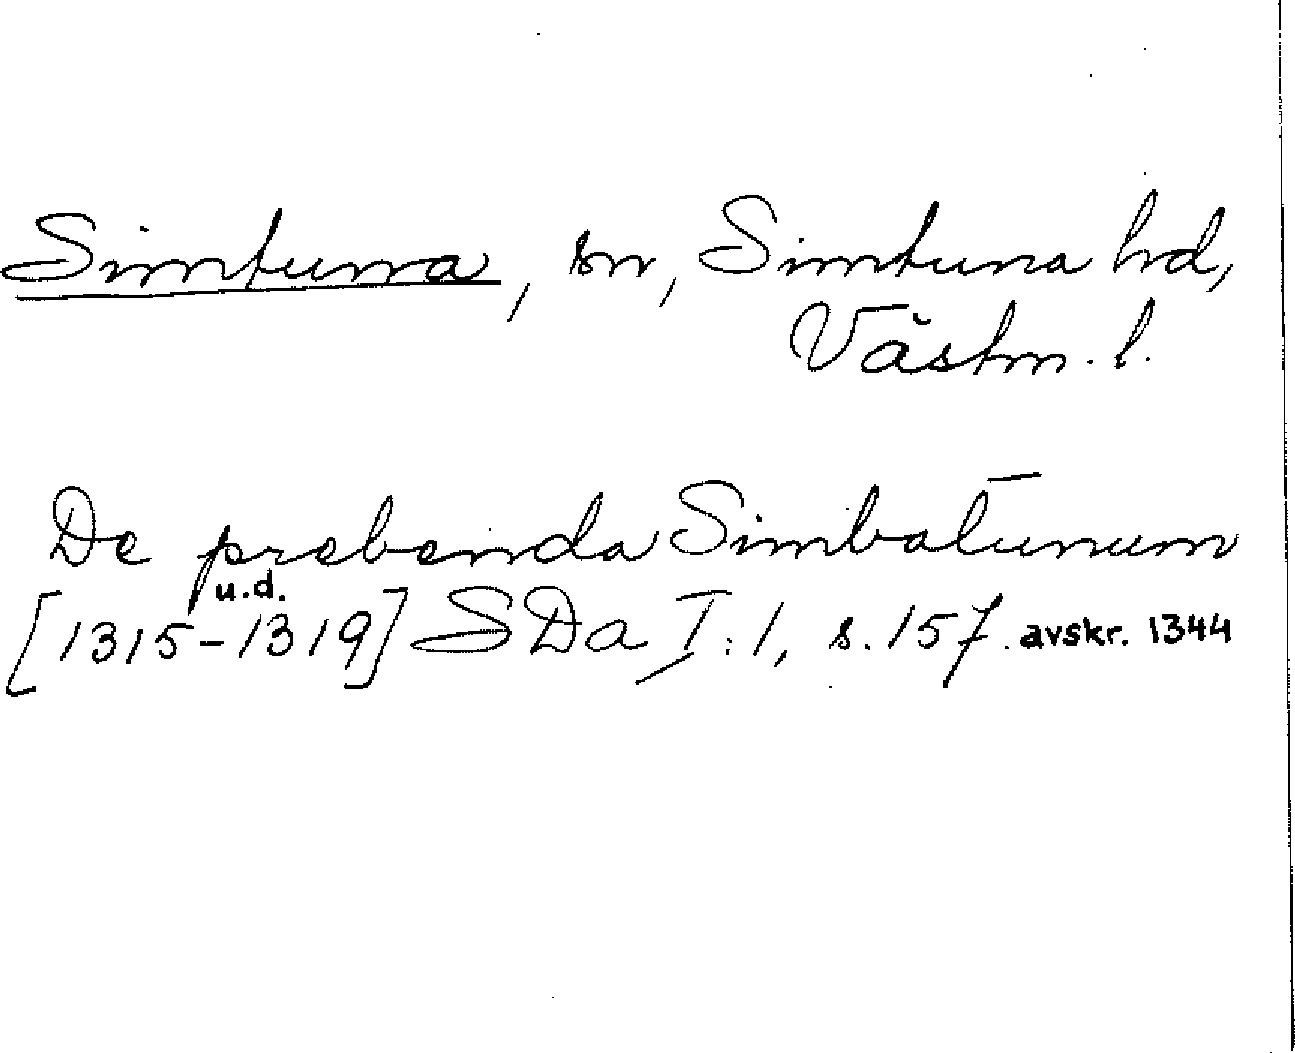 Simtuna, sn, Simtuna hd,
Västm. l.
De prebenda Simbatunum
u.d.
[1315-1319] SDa I:1, s. 157. avskr. 1344